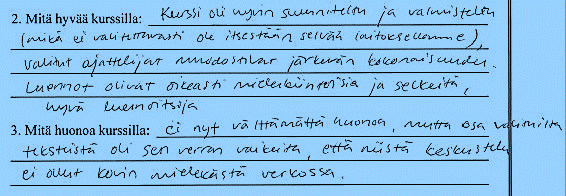 2. Mitä hyvää kurssilla: Kurssi oli hyvin suunniteltu ja valmisteltu
(mikä ei valitettavasti ole itsestään selvää laitoksellamme),
valitut ajattelijat muodostivat järkevän kokonaisuuden.
Luennot olivat oikeasti mielenkiintoisia ja selkeitä,
hyvä luennoitsija
3. Mitä huonoa kurssilla: ei nyt välttämättä huonoa, mutta osa valituista
teksteistä oli sen verran vaikeita, että niistä keskustelu
ei ollut kovin mielekästä verkossa.